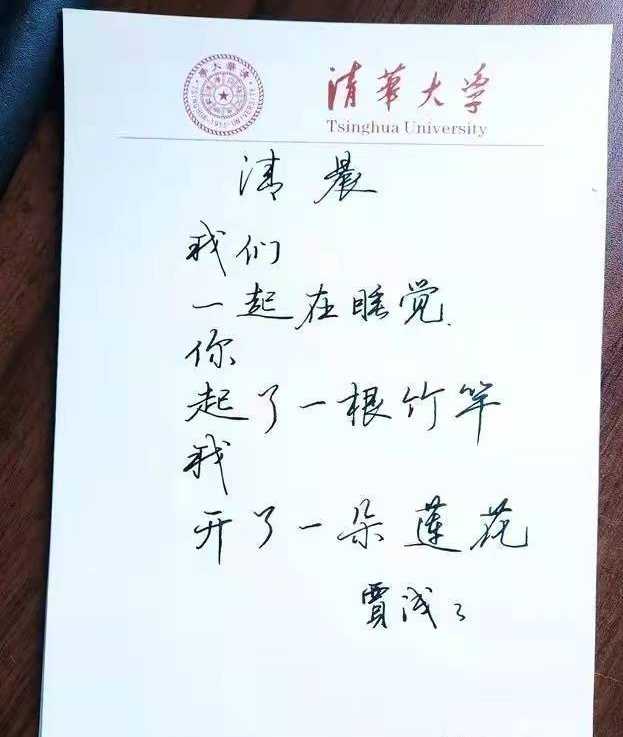 清華大学
Tsinghua University
清晨
我们
一起在睡觉
你
起了一根竹竿
我
开了一朵莲花
賈浅之